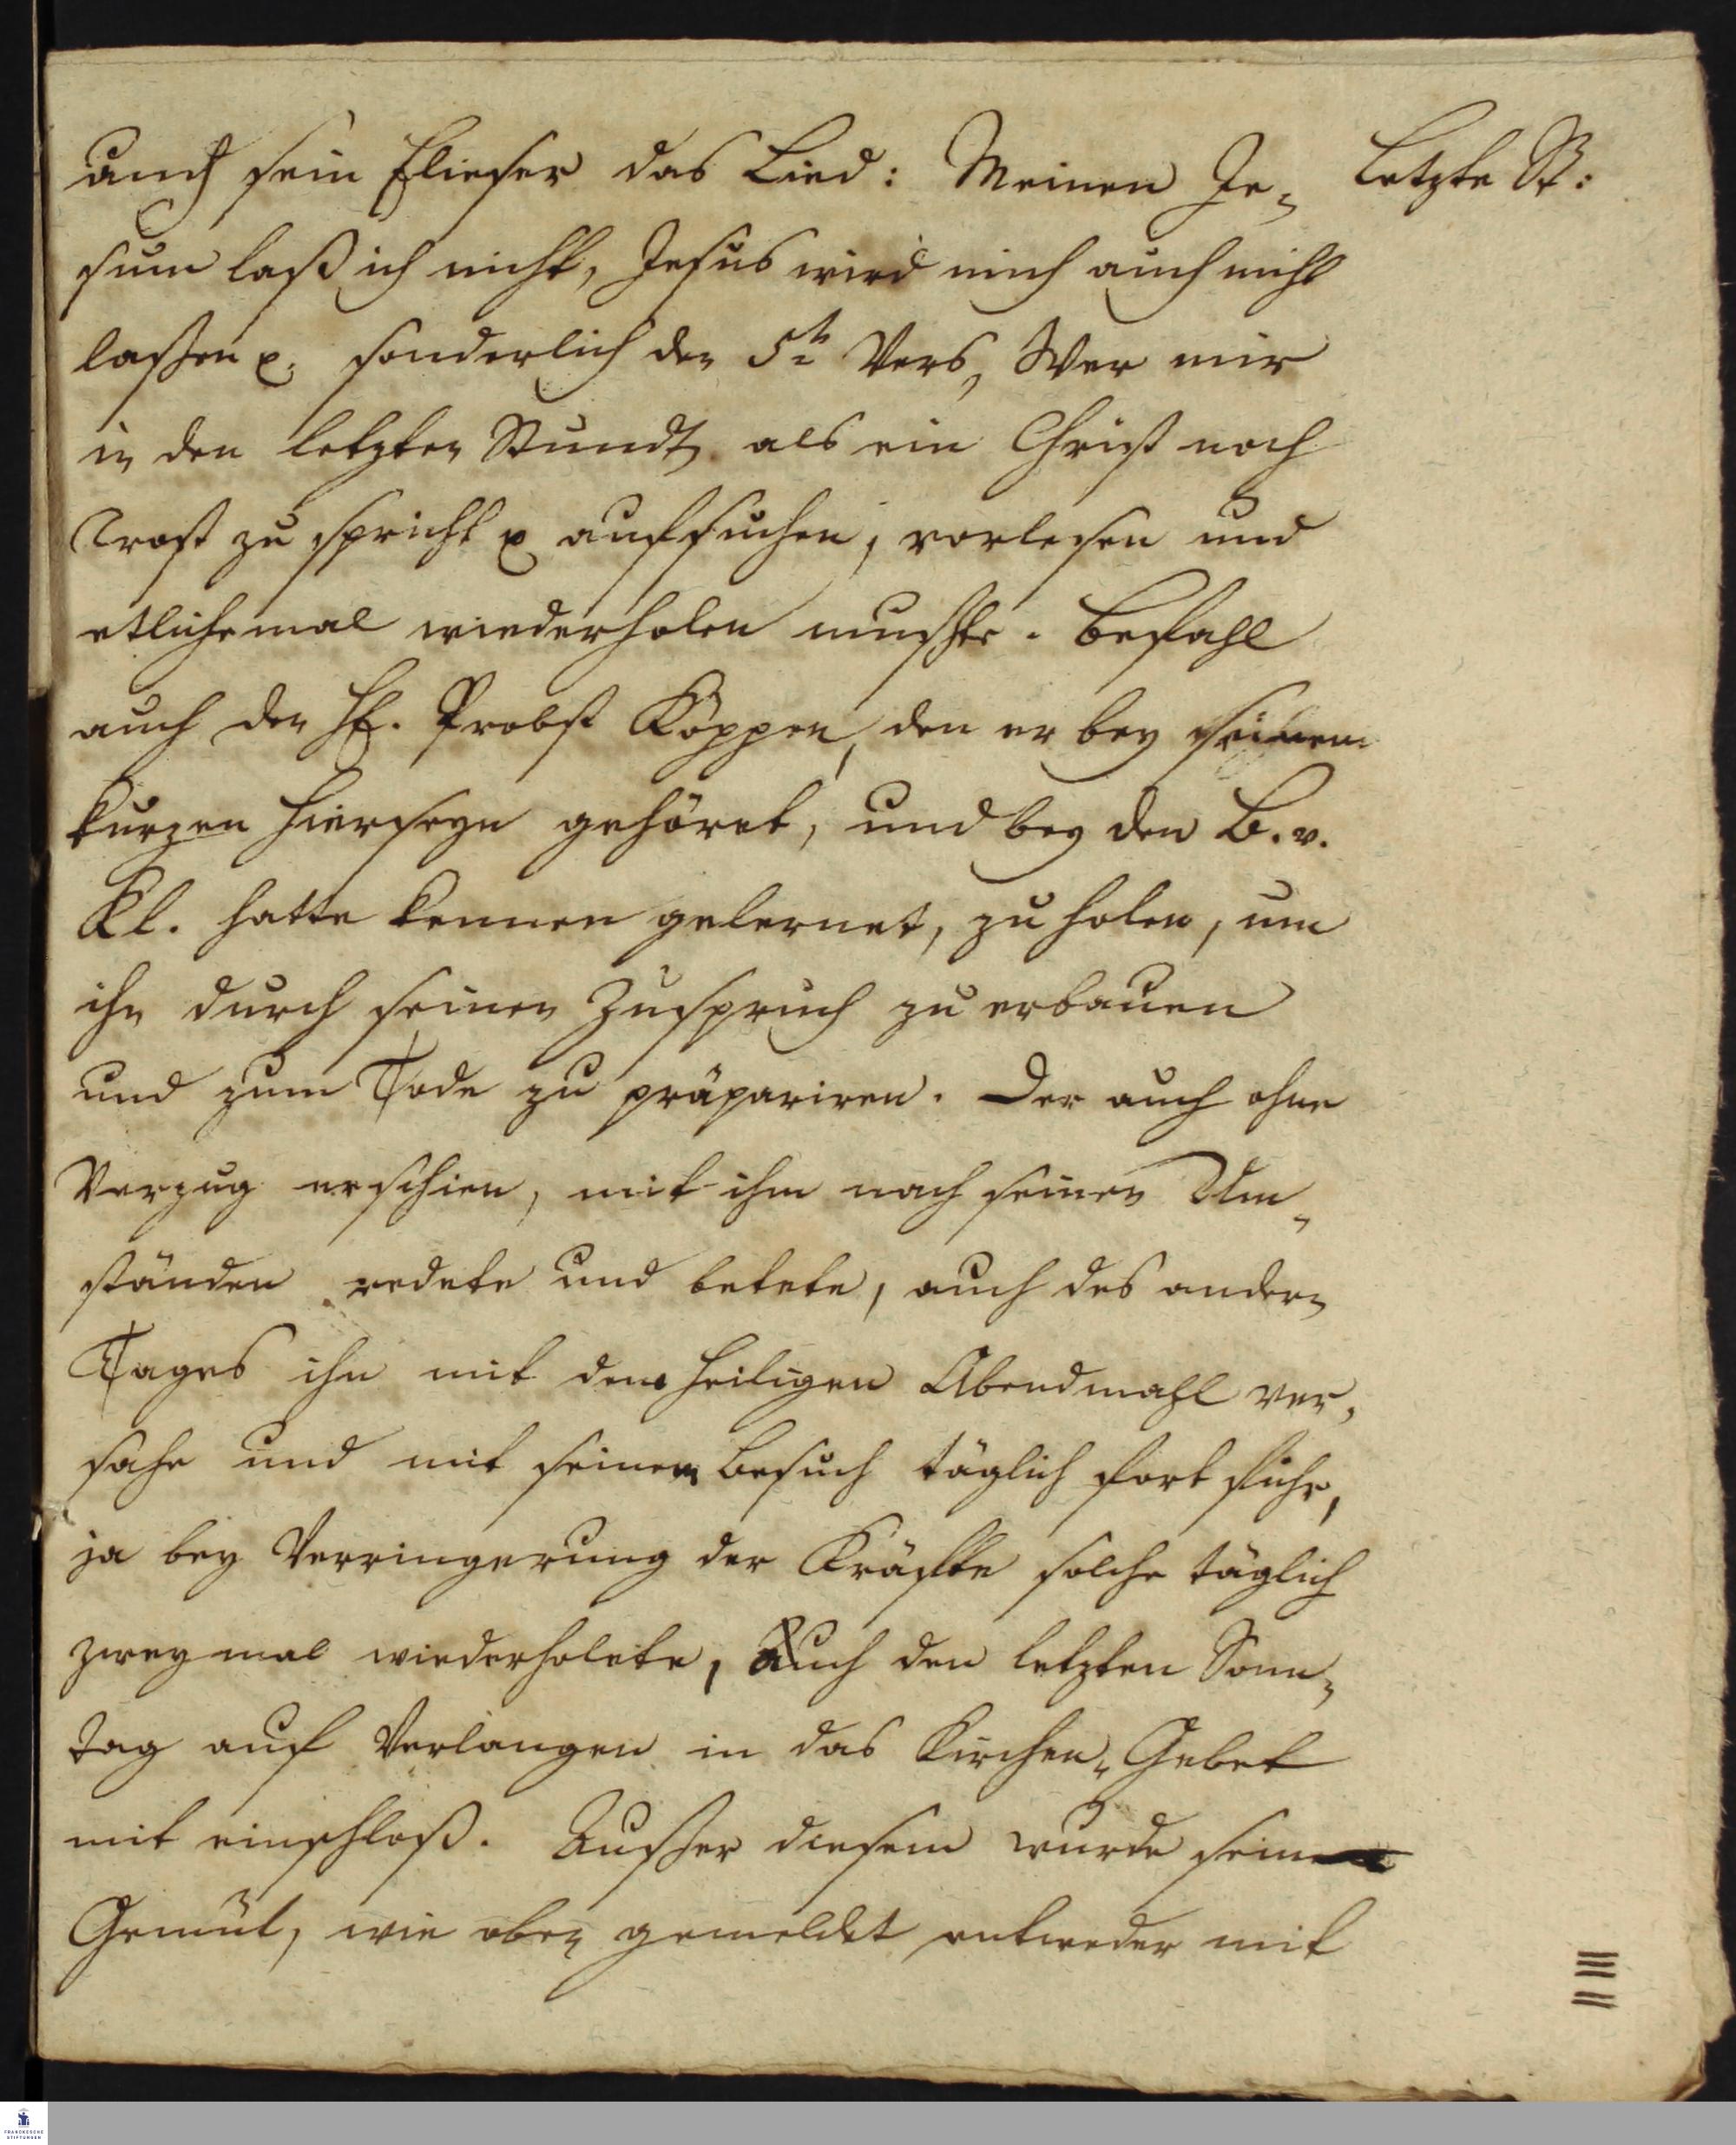 auch sein Elieser das Lied: Meinen Je- letzte St:
sum laß ich nicht, Jesus wird mich auch nicht
laßen p. sonderlich den 5ten Vers, Wer mir
in den letzten Stundt als ein Christ noch
Trost zu spricht p aufsuchen, vorlesen und
etlichemal wiederholen mußte. Befahl
auch den H. Probst Köppen, den er bey seinem
kurzen Hierseyn gehöret, und bey den B. v.
Kl. hatte kennen gelernet, zu holen, um
ihn durch seinen Zuspruch zu erbauen
und zum Tode zu präpariren. Der auch ohne
Verzug erschien, mit ihm nach seinen Um-
ständen redete und betete, auch des andern
Tages ihn mit dem heiligen Abendmahl ver-
sahe und mit seinem Besuch täglich fort fuhr,
ja bey Verringerung der Kräfte solche täglich
zweymal wiederholete, Auch den letzten Sonn-
tag auf Verlangen in das Kirchen-Gebet
mit einschloß. Außer diesem wurde sein
Gemüt, wie oben gemeldet entweder mit
FRANCKESCHE
STIFTUNGEN